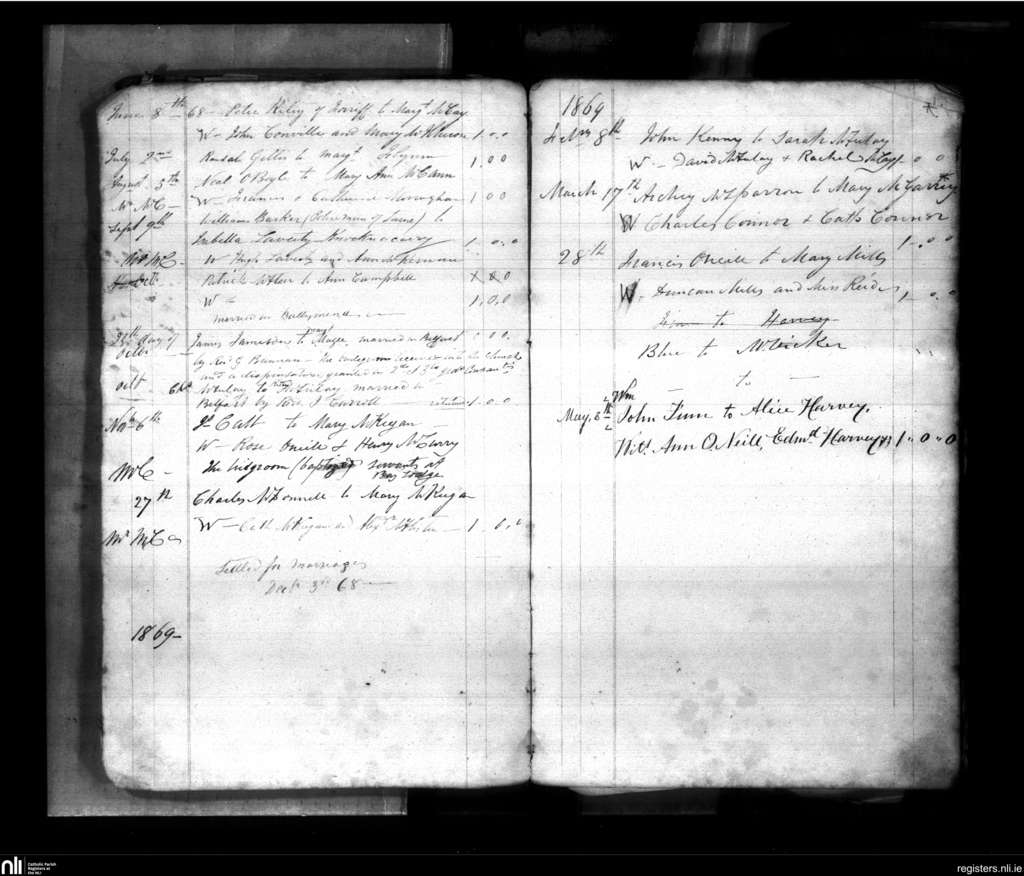 June 8th 68 – Peter Kiley of to Margt McCay
W – John Conville and Mary 1.0.0
July 2nd Randal Gillis to Margt Glynn 1.0.0
August 5th Neal O'Boyle to Mary Ann McCann
Mr McC – W – Francis & Catherine 1 0 0
Sept 9th William Barker (Policeman of Larne) to
Isabella Laverty Knocknacarry 1.0.0
Mr McC – W Hugh Laverty and Ann
Oct Patrick to Ann Campbell X X 0
W – 1.0.0
married in Ballymena
28th day of Octr James Jameson to Magee married in Belfast 0 0.
by Revd G Bannan – the bridegroom received into the Church
and a dispensation granted in 2nd & 3rd
Oct 6th McAulay to McAulay married in
Belfast by Rev. J 1.0.0
Novr 6th Catt to Mary McKegan
W – Rose Oneill & Henry McCurry
McC – the bridgroom (baptized) servants at
Bay Lodge
27th Charles McDonnell to Mary McKegan
Mr McC W – Cath McKegan and Alexr 1.0.0
Settled for marriages
Decr 3rd 68 —
1869 –
1869
Febry 8th John Kenny to Sarah McAulay
W. – David McAulay & Rachel McCay 0 0
March 17th Archey McSparron to Mary McCartney
W Charles Connor & Cath Connor
1.0 0
28th Francis Oneill to Mary Mills
W. – Duncan Mills and Miss Reid 1 0.0
to Harvey
Blue to McVicker
– to –
May, 8th John Finn to Alice Harvey.
Wit. Ann O'Neill, Edmd Harvey 1..0..0
nli
Catholic Parish
Registers at
the NLI
registers.nli.ie